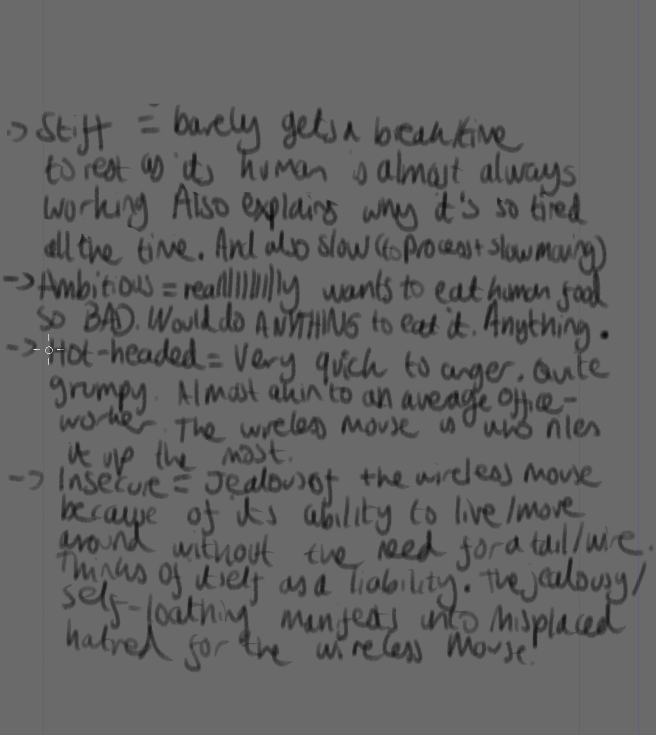 -> Stiff = barely gets a break/time
to rest as its human is almost always
working Also explains why it's so tired
all the time. And also slow (to process + slow moving)
-> Ambitious = reallllllllly wants to eat human food
SO BAD. Would do ANYTHING to eat it. Anything.
-> Hot-headed = Very quick to anger. Quite
grumpy. Almost akin to an average office-
worker. The wireless mouse is who riles
it up the most.
-> Insecure = Jealous of the wireless mouse
because of its ability to live/move
around without the need for a tail/wire.
Thinks of itself as a liability. The jealousy/
self-loathing manifests into misplaced
hatred for the wireless mouse.